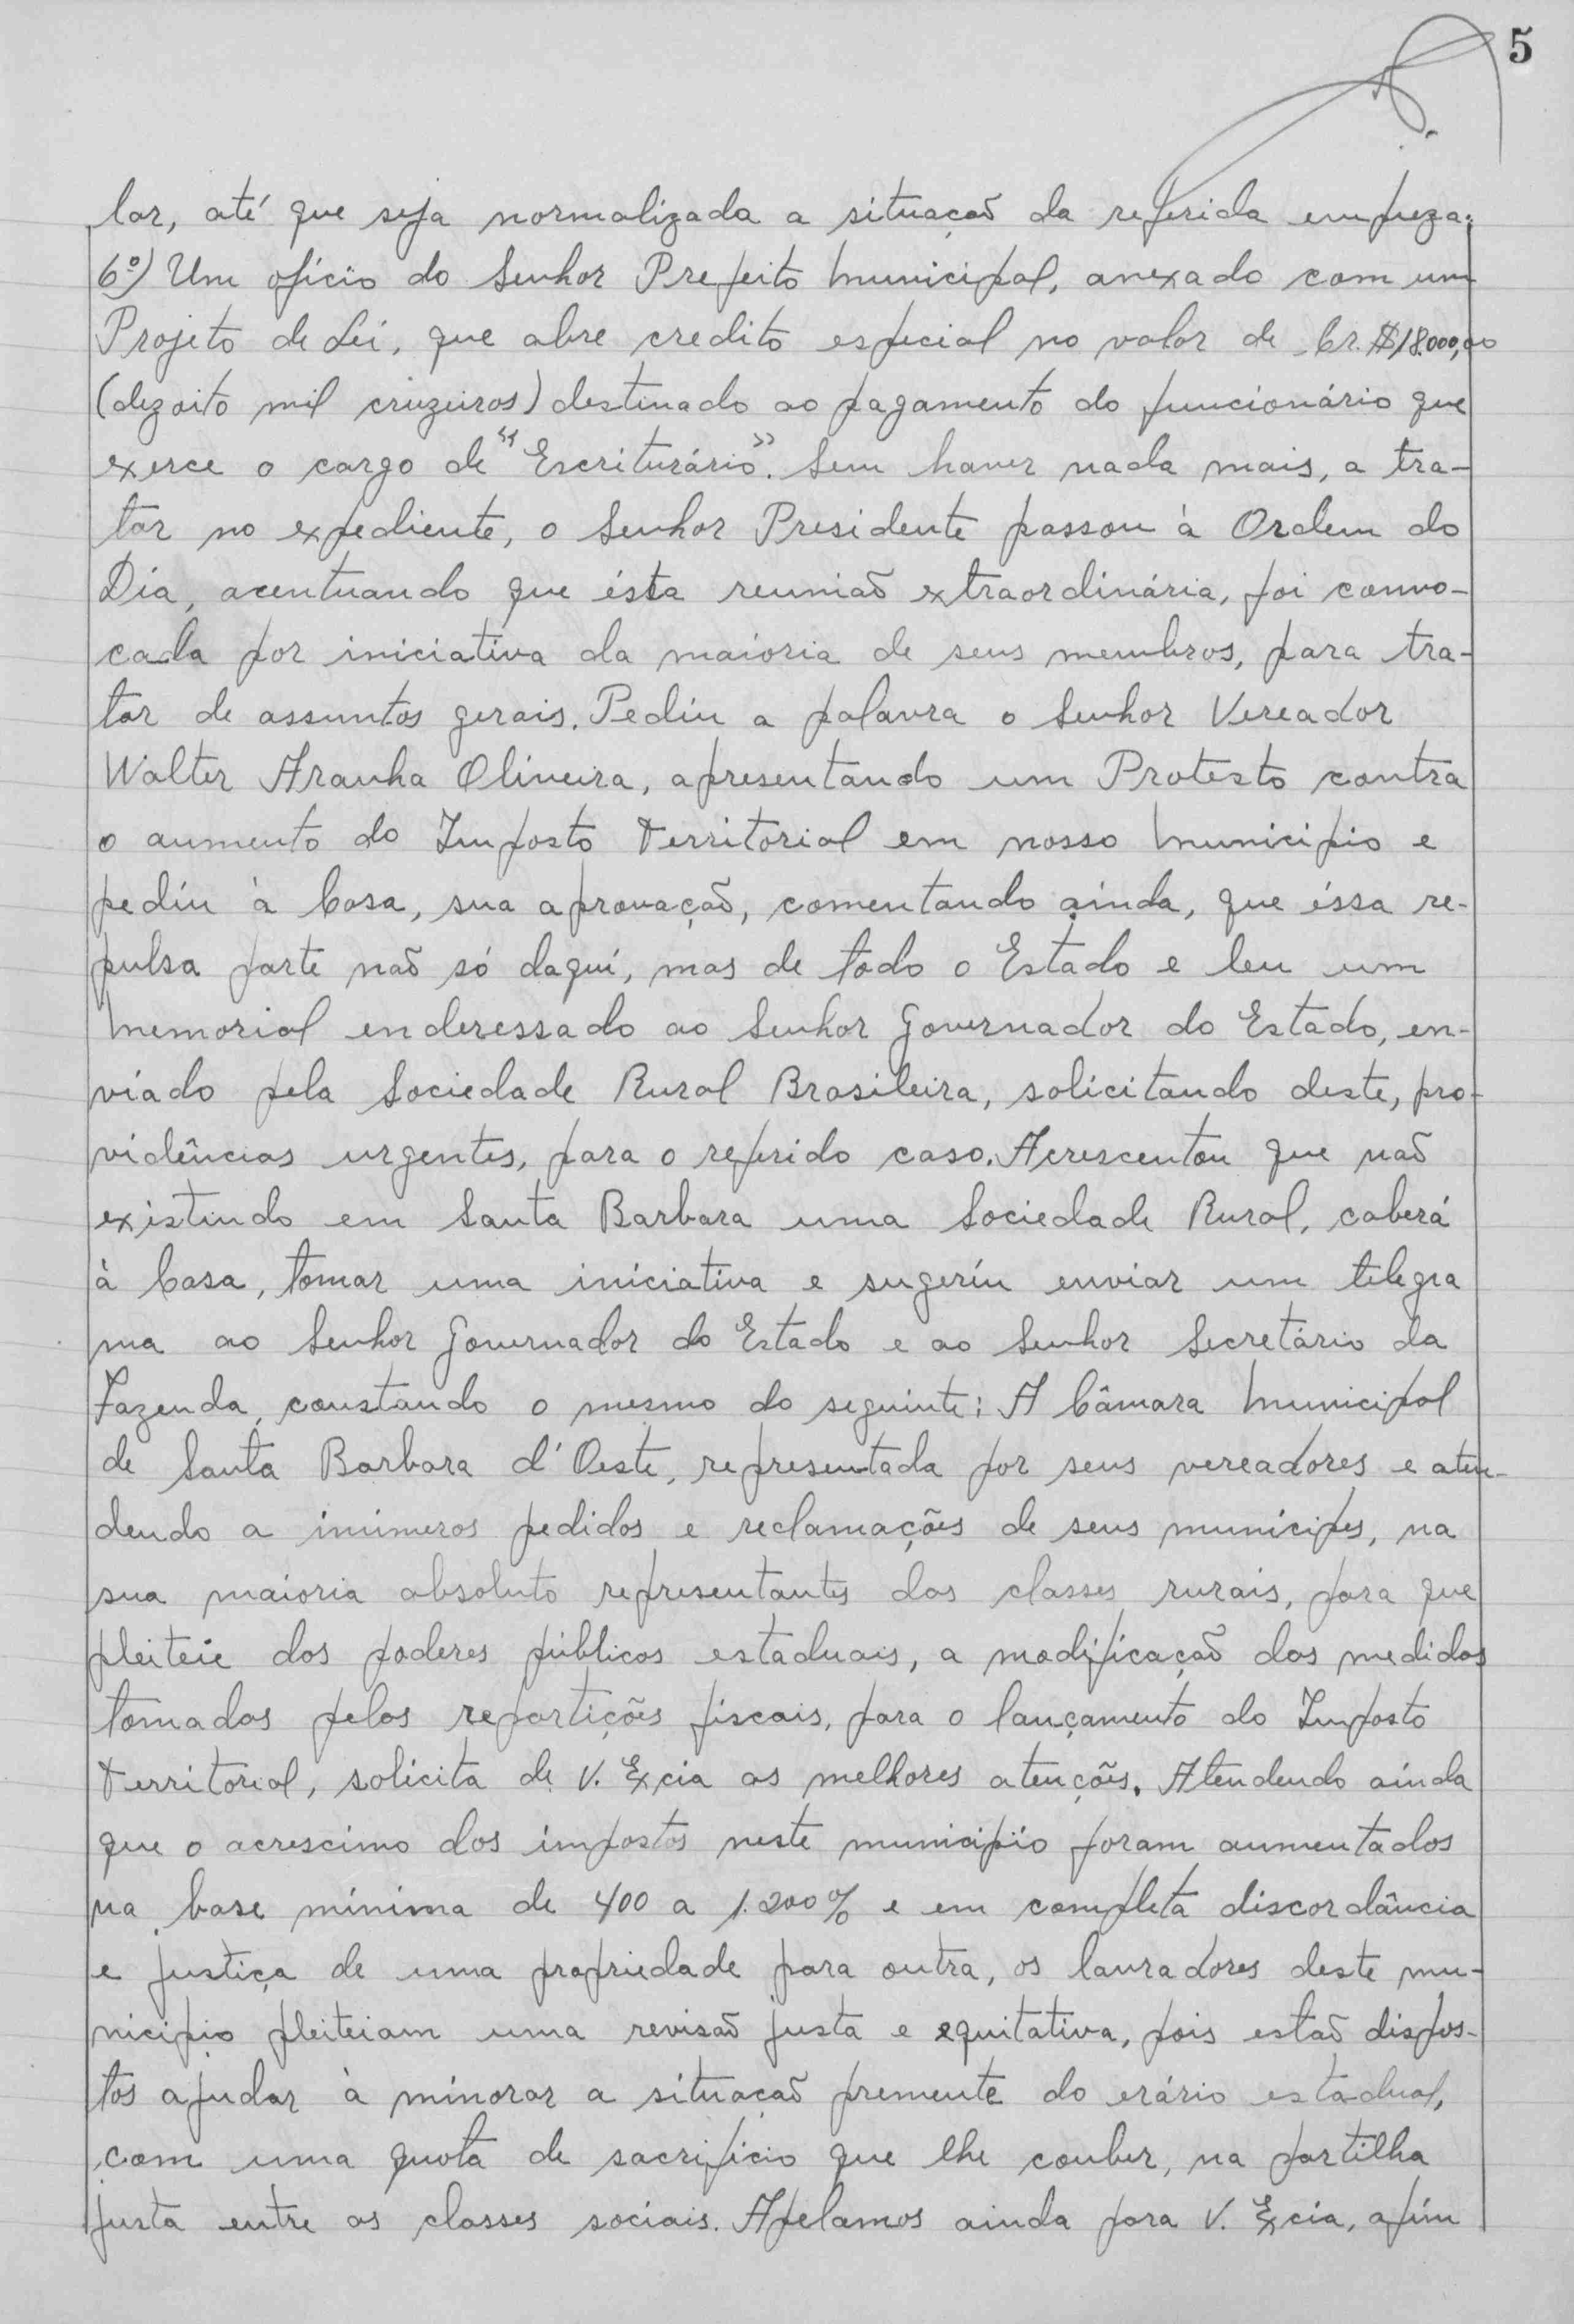 5
lar, até que seja normalizada a situação da referida empreza.
6º) Um ofício do Senhor Prefeito Municipal, anexado com um
Projeto de Lei, que abre credito especial no valor de Cr.$18.000,00
(dezoito mil cruzeiros) destinado ao pagamento do funcionário que
exerce o cargo de "Escriturário". Sem haver nada mais, a tra-
tar no expediente, o Senhor Presidente passou à Ordem do
Dia, acentuando que ésta reunião extraordinária, foi convo-
cada por iniciativa da maioria de seus membros, para tra-
tar de assuntos gerais. Pediu a palavra o Senhor Vereador
Walter Aranha Oliveira, apresentando um Protesto contra
o aumento do Imposto Territorial em nosso Municipio e
pedíu à Casa, sua aprovação, comentando ainda, que éssa re-
pulsa parte não só daquí, mas de todo o Estado e leu um
Memorial enderessado ao Senhor Governador do Estado, en-
viado pela Sociedade Rural Brasileira, solicitando deste, pro-
vidências urgentes, para o referido caso. Acrescentou que não
existindo em Santa Barbara uma Sociedade Rural, caberá
à Casa, tomar uma iniciativa e sugeríu enviar um telegra
ma ao Senhor Governador do Estado e ao Senhor Secretário da
Fazenda, constando o mesmo do seguinte: A Câmara Municipal
de Santa Barbara d'Oeste, representada por seus vereadores e aten-
dendo a inúmeros pedidos e reclamações de seus munícipes, na
sua maioria absoluto representantes das classes rurais, para que
pleiteie dos poderes públicos estaduais, a modificação das medidas
tomadas pelas repartições fiscais, para o lançamento do Imposto
Territorial, solicita de V. Excia as melhores atenções. Atendendo ainda
que o acrescimo dos impostos neste municipio foram aumentados
na base mínima de 400 a 1.200% e em completa discordância
e justiça de uma propriedade para outra, os lavradores deste mu-
nicipio pleiteiam uma revisão justa e equitativa, pois estão dispos-
tos ajudar à minorar a situação premente do erário estadual,
com uma quota de sacrifício que lhe couber, na partilha
justa entre as classes sociais. Apelamos ainda para V. Excia, afim